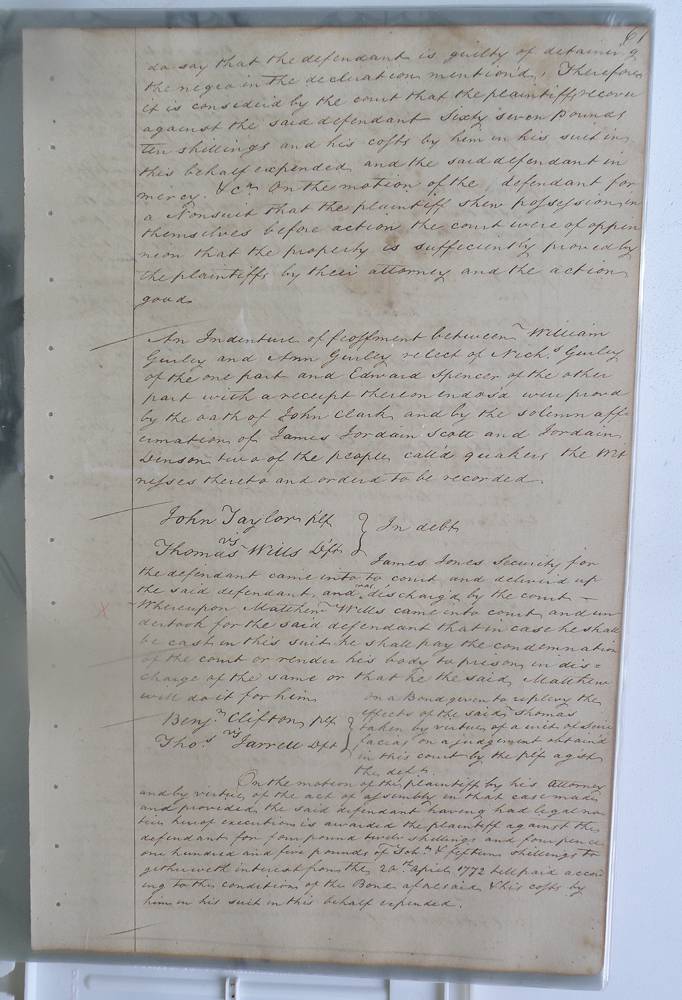 61
do say that the defendant is guilty of detaining
the negro in the declaration mention'd, Therefore
it is consider'd by the court that the plaintiffs recover
against the said defendant Sixty seven Pounds
ten shillings and his costs by him in his suit in
this behalf expended and the said defendant in
mercy. &ca. On the motion of the defendant for
a Nonsuit that the plaintiff shew possession in
themselves before action the court were of oppen
neon that the property is sufficiently proved by
the plaintiffs by their attorney and the action
good
An Indenture of feoffment between William
Gurley and Ann Gurley relect of Nichs. Gurley
of the one part and Edward Spencer of the other
part with a receipt thereon endos'd were prov'd
by the oath of John Clark and by the solemn aff-
irmation of James Jordain Scott and Jordain
Denson two of the people call'd quakers the Wit
nesses thereto and order'd to be recorded.
John Taylor plt
vs
Thomas Wills Deft
} In debt
James Jones Security for
the defendant came into to court and deliver'd up
the said defendant and was discharg'd by the court —
Whereupon Matthew Wills came into court and un
dertook for the said defendant that in case he shall
be cast in this suit he shall pay the condemnation
of the court or render his body to prison in dis=
charge of the same or that he the said Matthew
will do it for him
Benjn. Clifton plt
vs
Thos. Jarrell Deft
} on a Bond given to replevy the
effects of the said Thomas
taken by virtue of a writ of fieri
facias on a judgement obtain'd
in this court by the plt agst
the deft.
On the motion of the plaintiff by his Attorney
and by virtue of the act of assembly in that case made
and provided the said defendant having had legal no
tice hereof execution is awarded the plaintiff against the
defendant for four pound twelve shillings and four pence
one hundred and five pounds of Tobo. & fifteen shillings to
gether with interest from the 20th. April 1772 till paid accord
ing to the condition of the Bond aforesaid & his costs by
him in his suit in this behalf expended.